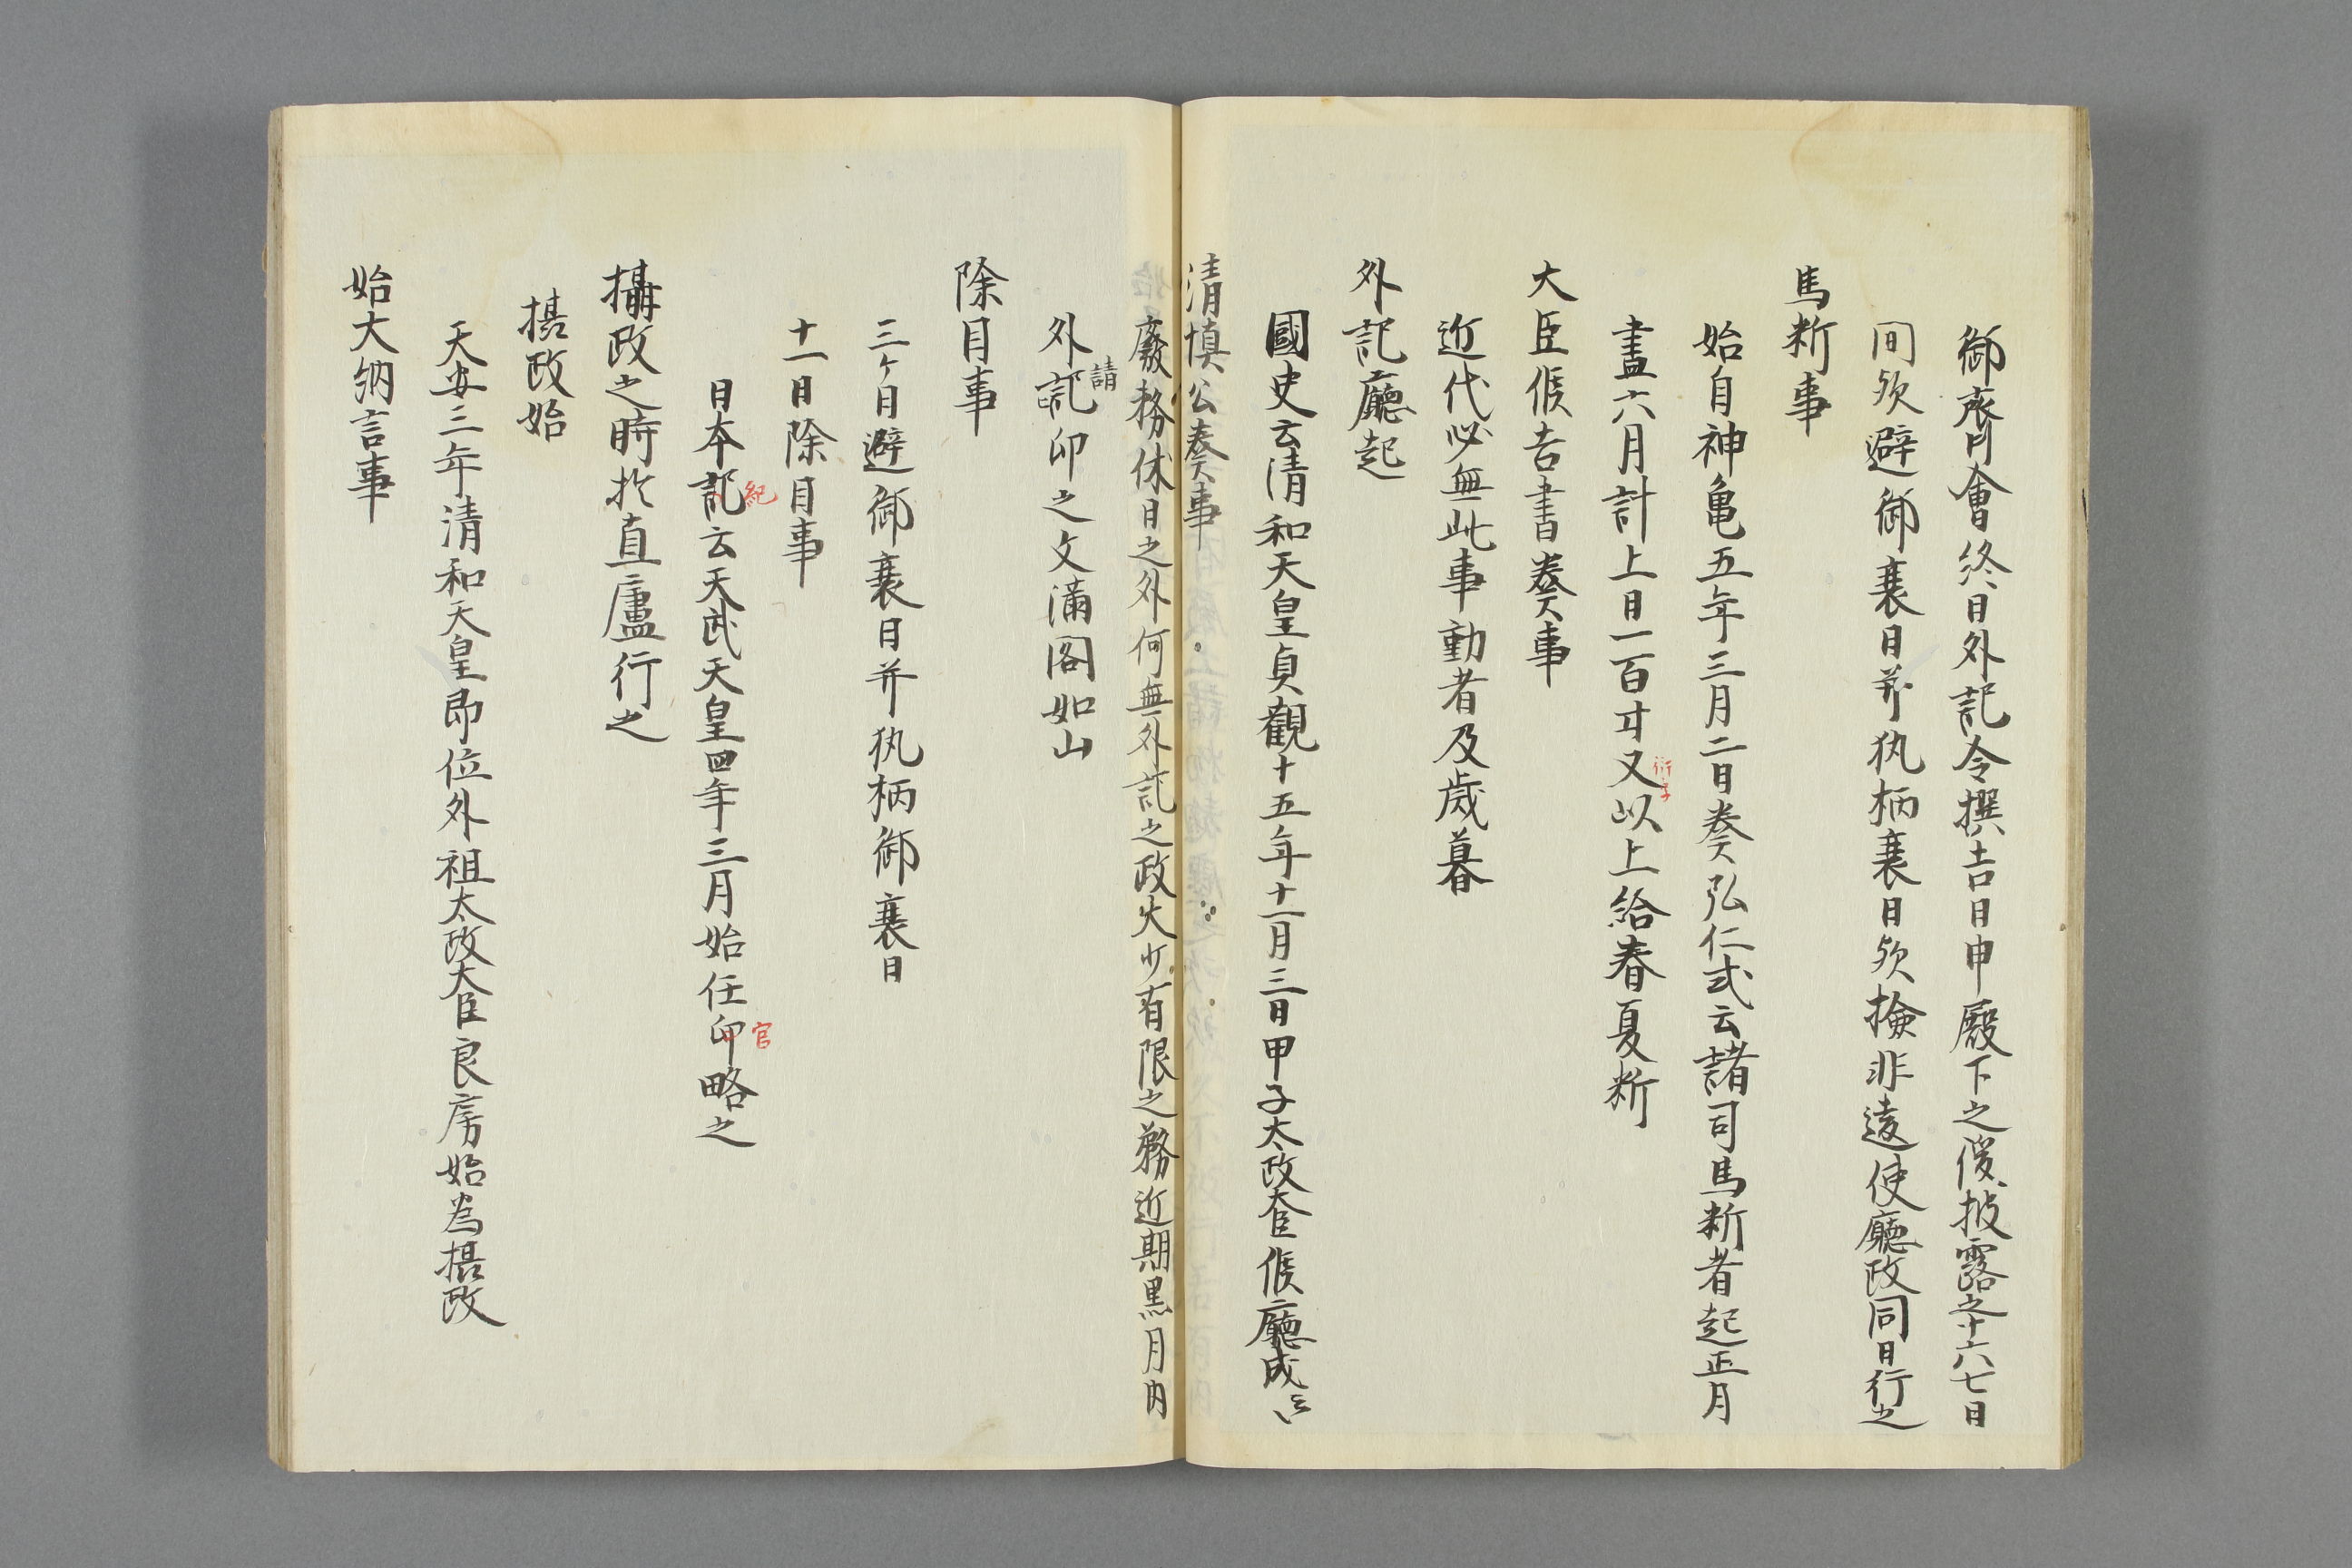 御齊會終日外記令撰吉日申殿下之後披露之十六七日
間欤避御衰日并執柄衰日欤撿非違使廳政同日行之
馬斱事
始自神亀五年三月二日奏弘仁式云諸司馬斱者起正月
盡六月計上日一百廿又以上給春夏斱
衍字
大臣候吉書奏事
近代必無此事動者及歳暮
外記廳起
國史云清和天皇貞観十五年十一月三日甲子太政大臣候廳成云々
清慎公奏事
廢務休日之外何無外記之政火少有限之務近期黒月内
請
外記印之文満閣如山
除目事
三ケ日避御衰日并執柄御衰日
十一日除目事
日本記云天武天皇四年三月始任印略之
紀
官
攝政之時於直廬行之
摂政始
天安三年清和天皇即位外祖太政大臣良房始為摂政
始大納言事